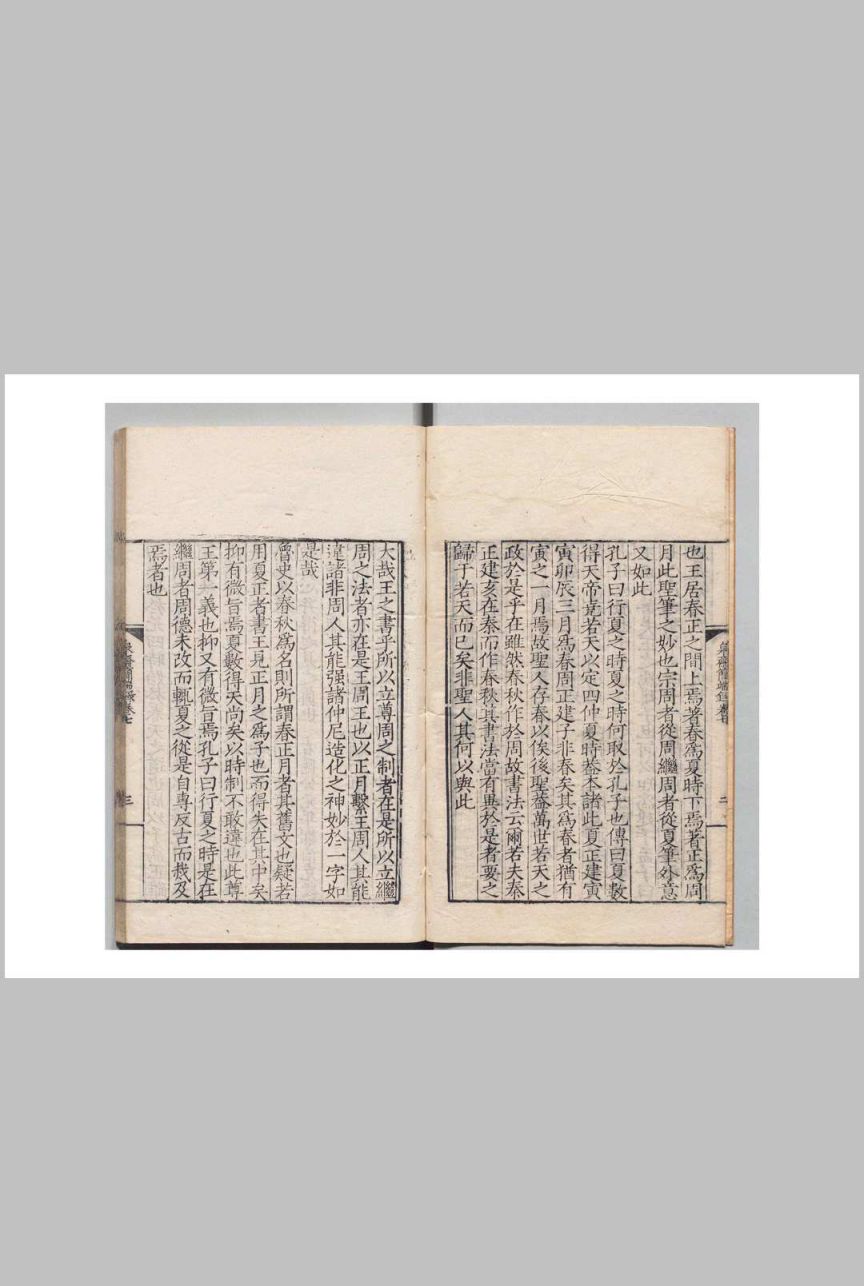 也王居春正之間上焉著春爲夏時下焉著正爲周
月此聖筆之妙也宗周者從周繼周者從夏筆外意
又如此
孔子曰行夏之時夏之時何取於孔子也傳曰夏數
得天帝堯若天以定四仲夏時葢本諸此夏正建寅
寅卯辰三月爲春周正建子非春矣其爲春者猶有
寅之一月焉故聖人存春以俟後聖葢萬世若天之
政於是乎在雖然春秋作於周故書法云爾若夫秦
正建亥在秦而作春秋其書法當有異於是者要之
歸于若天而已矣非聖人其何以與此
簡端録卷七
二
大哉王之書乎所以立尊周之制者在是所以立繼
周之法者亦在是王周王也以正月繫王周人其能
違諸非周人其能强諸仲尼造化之神妙於一字如
是哉
魯史以春秋爲名則所謂春正月者其舊文也疑若
用夏正者書王見正月之爲子也而得失在其中矣
抑有微旨焉夏數得天尚矣以時制不敢違也此尊
王第一義也抑又有微旨焉孔子曰行夏之時是在
繼周者周德未改而輒夏之從是自專反古而烖及
焉者也
簡端録卷七
三